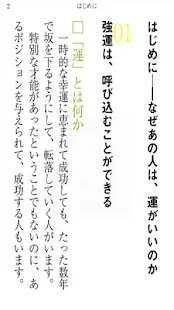 2
はじめに
はじめに――なぜあの人は、運がいいのか
01
強運は、呼び込むことができる
□「運」とは何か
一時的な幸運に恵まれて成功しても、たった数年
で坂を下るようにして、転落していく人がいます。
特別な才能があったということでもないのに、あ
るポジションを与えられて、成功する人もいます。